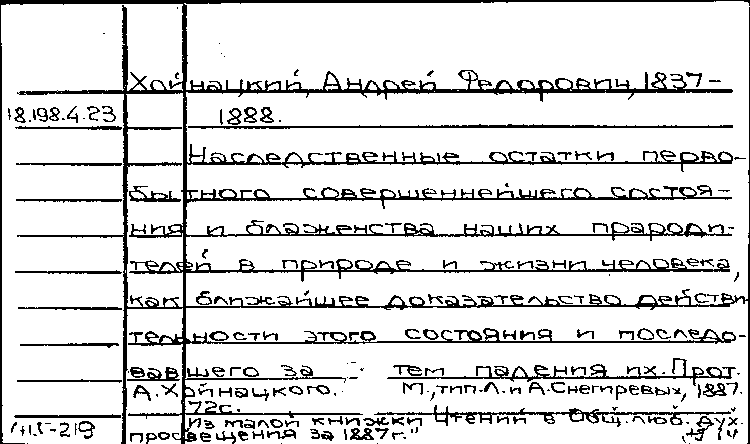 Хойнацкий, Андрей Федорович, 1837-
18.198.4.23 1888.
Наследственные остатки перво-
бытного совершеннейшего состоя-
ния и блаженства наших прароди-
телей в природе и жизни человека,
как ближайшее доказательство действи
тельности этого состояния и последо-
вавшего за тем падения их. Прот.
А. Хойнацкого. М., тип. Л. и А. Снегиревых, 1887.
72с.
Из малой книжки Чтений в Общ. люб. дух.
просвещения за 1887г."